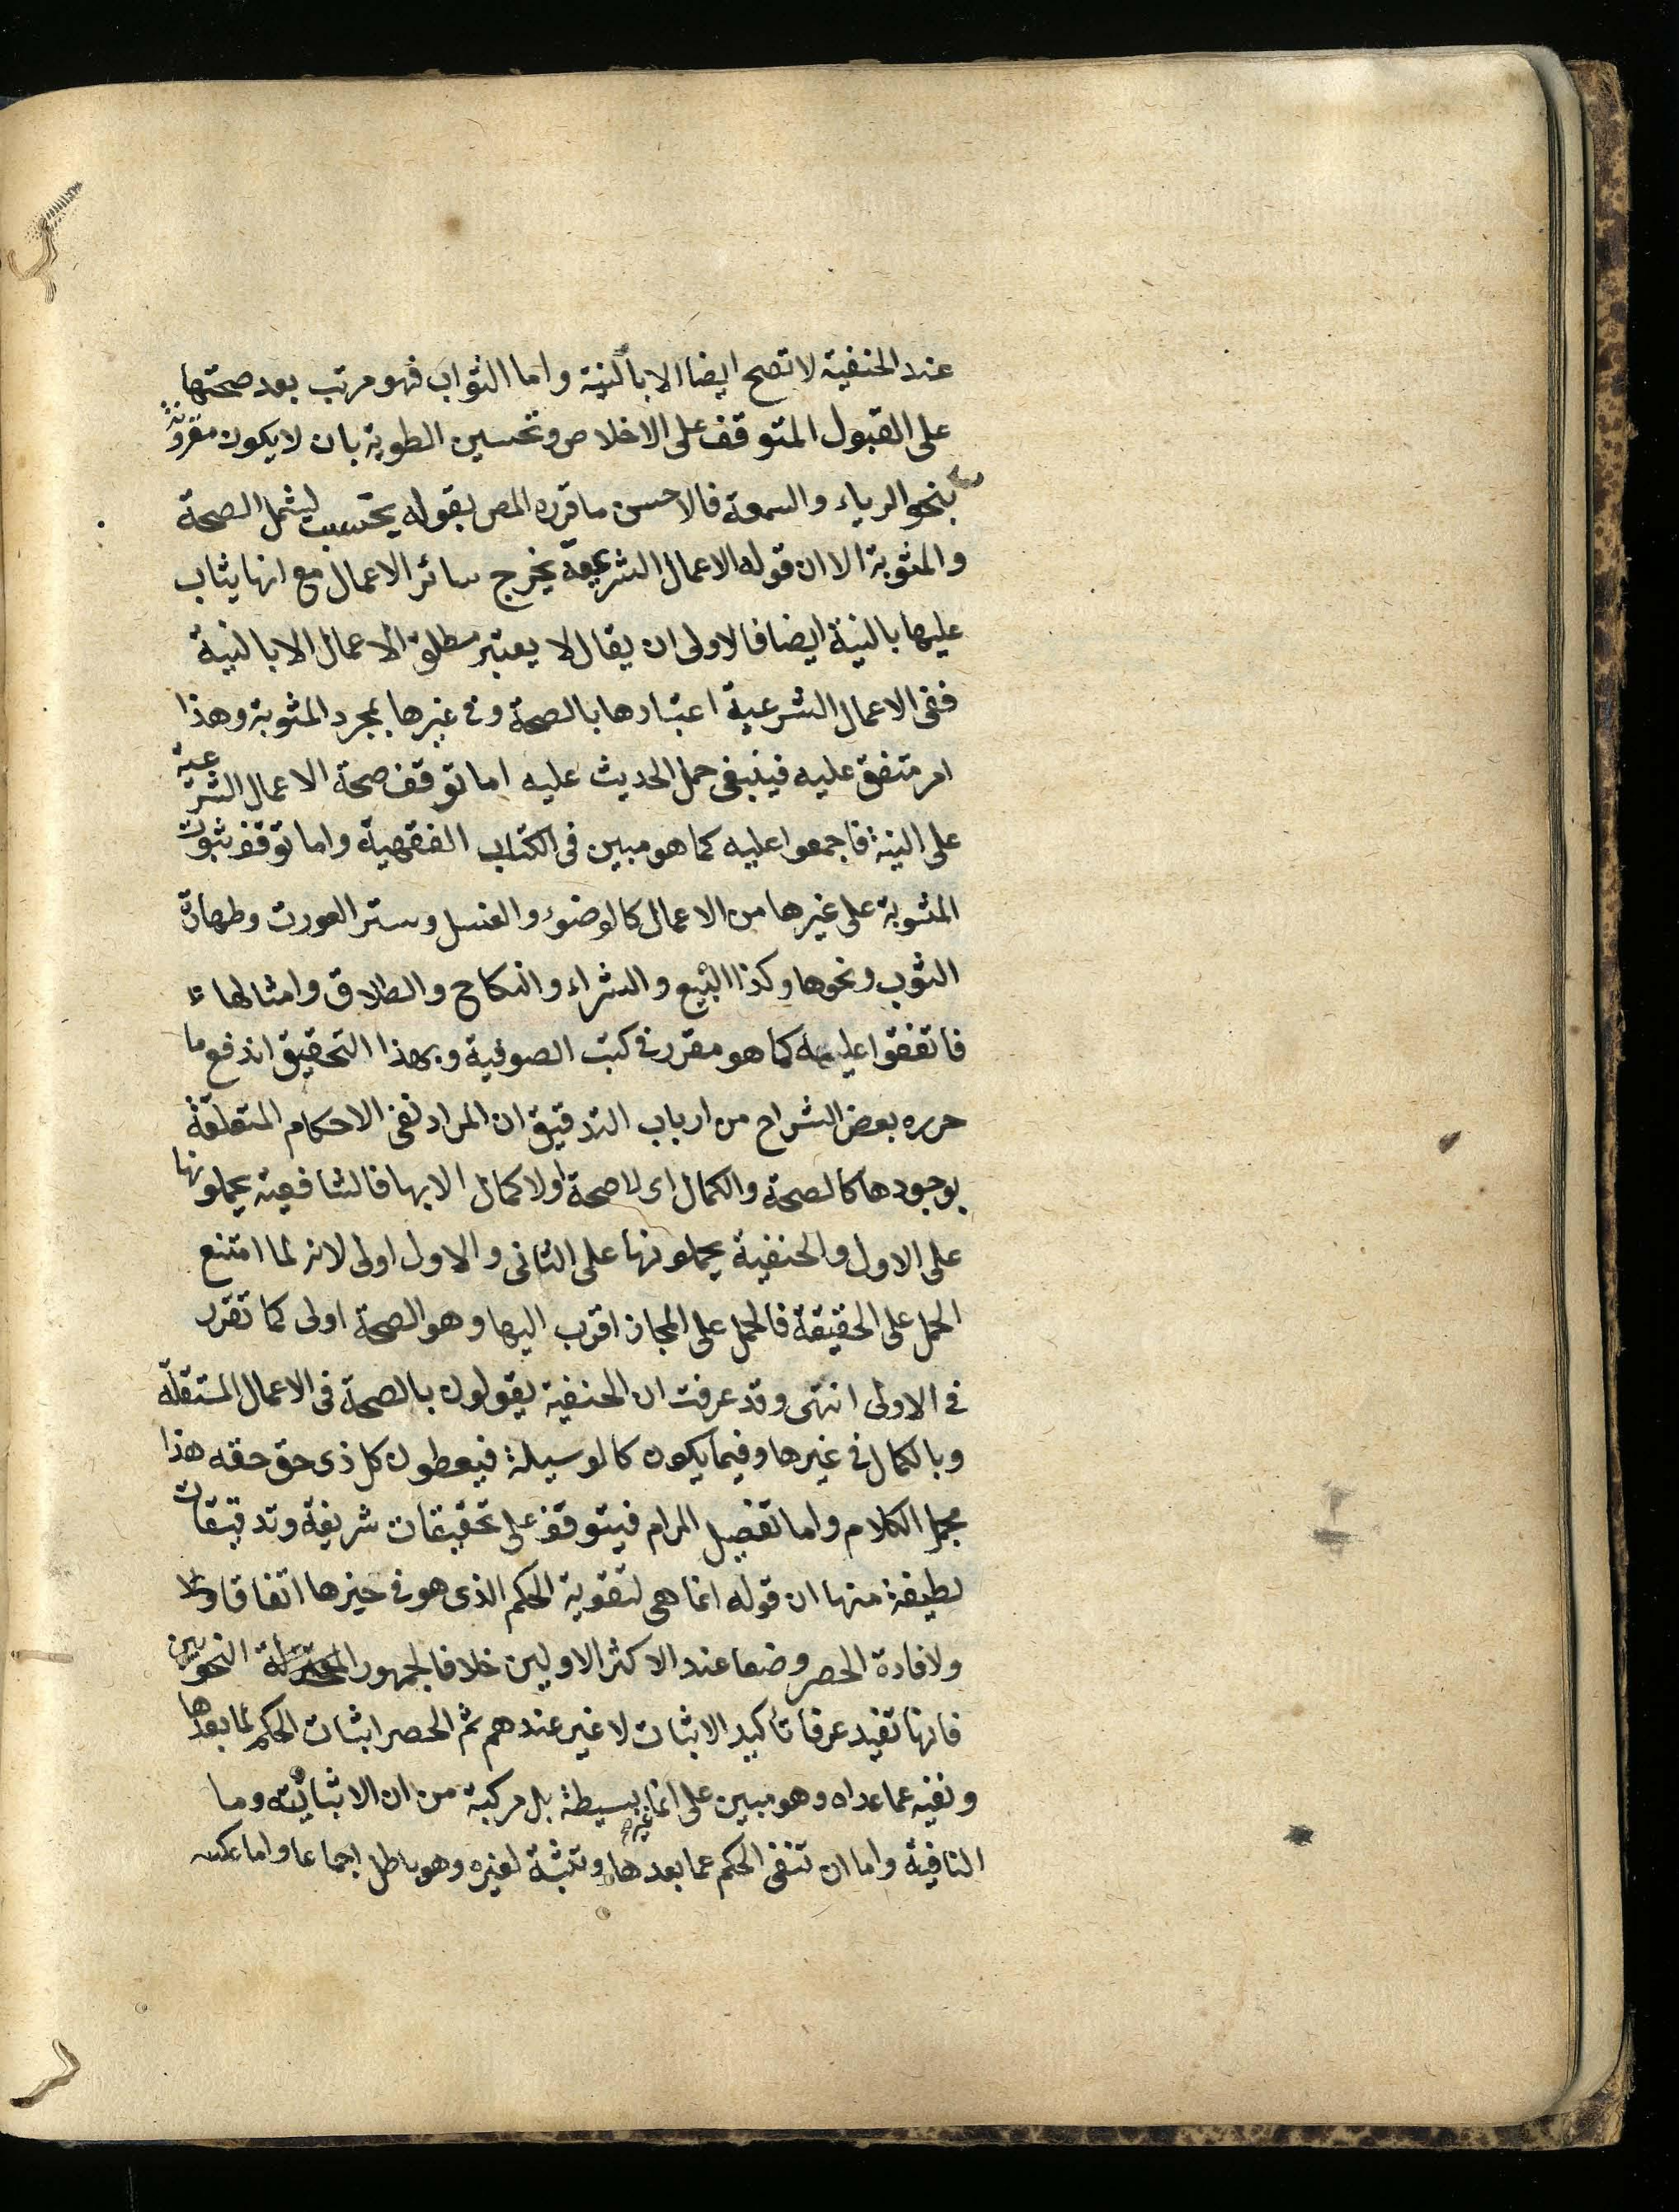 عند الحنفية لا تصح ايضا الا بالنية واما الثواب فهو مرتب بعد صحتها
على القبول المتوقف على الاخلاص وتحسين الطوية بان لا يكون مقرونة
بنحو الرياء والسمعة فالاحسن ما قرره المص بقوله يحتسب ليشمل الصحة
والمثوبة الا ان قوله الاعمال الشرعية يخرج سائر الاعمال مع انها يثاب
عليها بالنية ايضا فالاولى ان يقال لا يعتبر مطلق الاعمال الا بالنية
ففى الاعمال الشرعية اعتبارها بالصحة وفى غيرها بمجرد المثوبة وهذا
امر متفق عليه فينبغى حمل الحديث عليه اما توقف صحة الاعمال الشرعية
على النية فاجمعوا عليه كما هو مبين فى الكتاب الفقهية واما توقف ثبوت
المثوبة على غيرها من الاعمال كالوضوء والغسل وستر العورت وطهارة
الثوب ونحوها وكذا البيع والشراء والنكاح والطلاق وامثالها
فاتفقوا عليه كما هو مقرر فى كتب الصوفية وبهذا التحقيق اندفع ما
حرره بعض الشراح من ارباب التدقيق ان المراد نفى الاحكام المتعلقة
بوجودها كالصحة والكمال اى لا صحة اولا كمال الا بها فالشافعية يحملونها
على الاول والحنفية يحملونها على الثانى والاول اولى لانه لما امتنع
الحمل على الحقيقة فالحمل على المجاز اقرب اليها وهو الصحة اولى كما تقرر
فى الاولى انتهى وقد عرفت ان الحنفية يقولون بالصحة فى الاعمال المستقلة
وبالكمال فى غيرها وفيما يكون كالوسيلة فيعطون كل ذى حق حقه هذا
مجمل الكلام واما تفصيل المرام فيتوقف على تحقيقات شريفة وتدقيقات
لطيفة منها ان قوله انما هى لتقوية الحكم الذى هو فى حيزها اتفاقا
ولافادة الحصر وضعا عند الاكثر الاولين خلافا لجمهور النحويين
فانها تفيد عرفا تأكيد الاثبات لا غير عندهم ثم الحصر اثبات الحكم لما بعدها
ونفيه عما عداه وهو مبين على انما غير بسيطة بل مركبة من ان الاثباتية وما
النافية واما ان تنفى الحكم عما بعدها وتثبته لغيره وهو باطل اجماعا واما عكسه